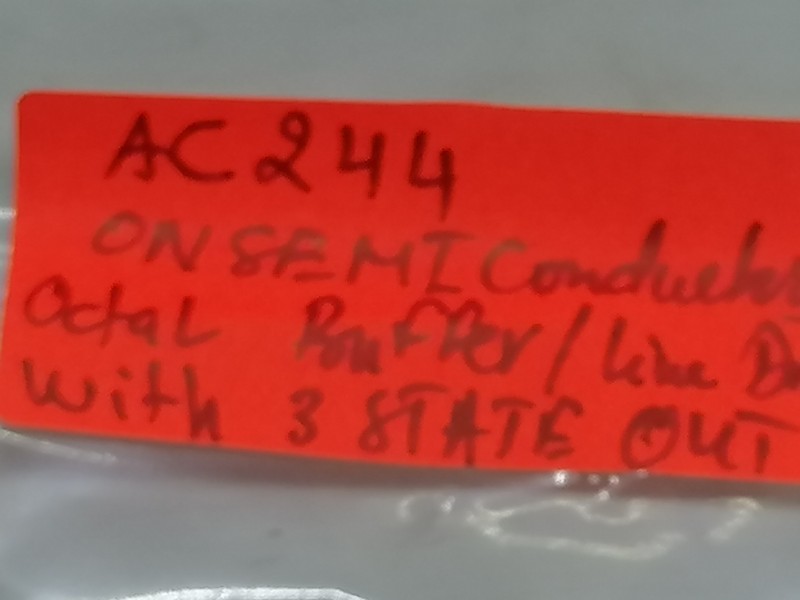 AC244
ON SEMI Conducto
Octal Buffer/Line D
With 3 STATE OUT